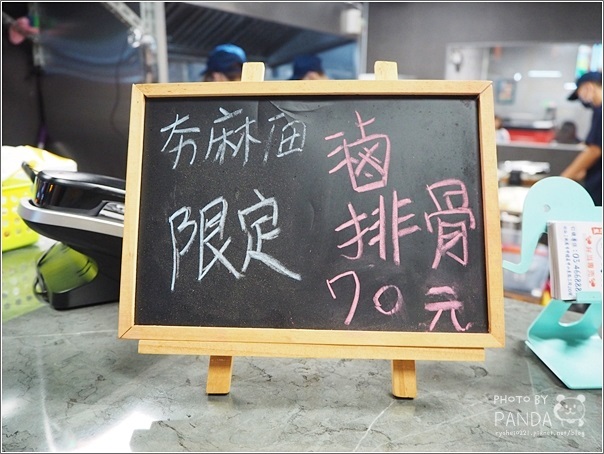 夯麻油
限定
滷
排骨
70元
PHOTO BY
PANDA